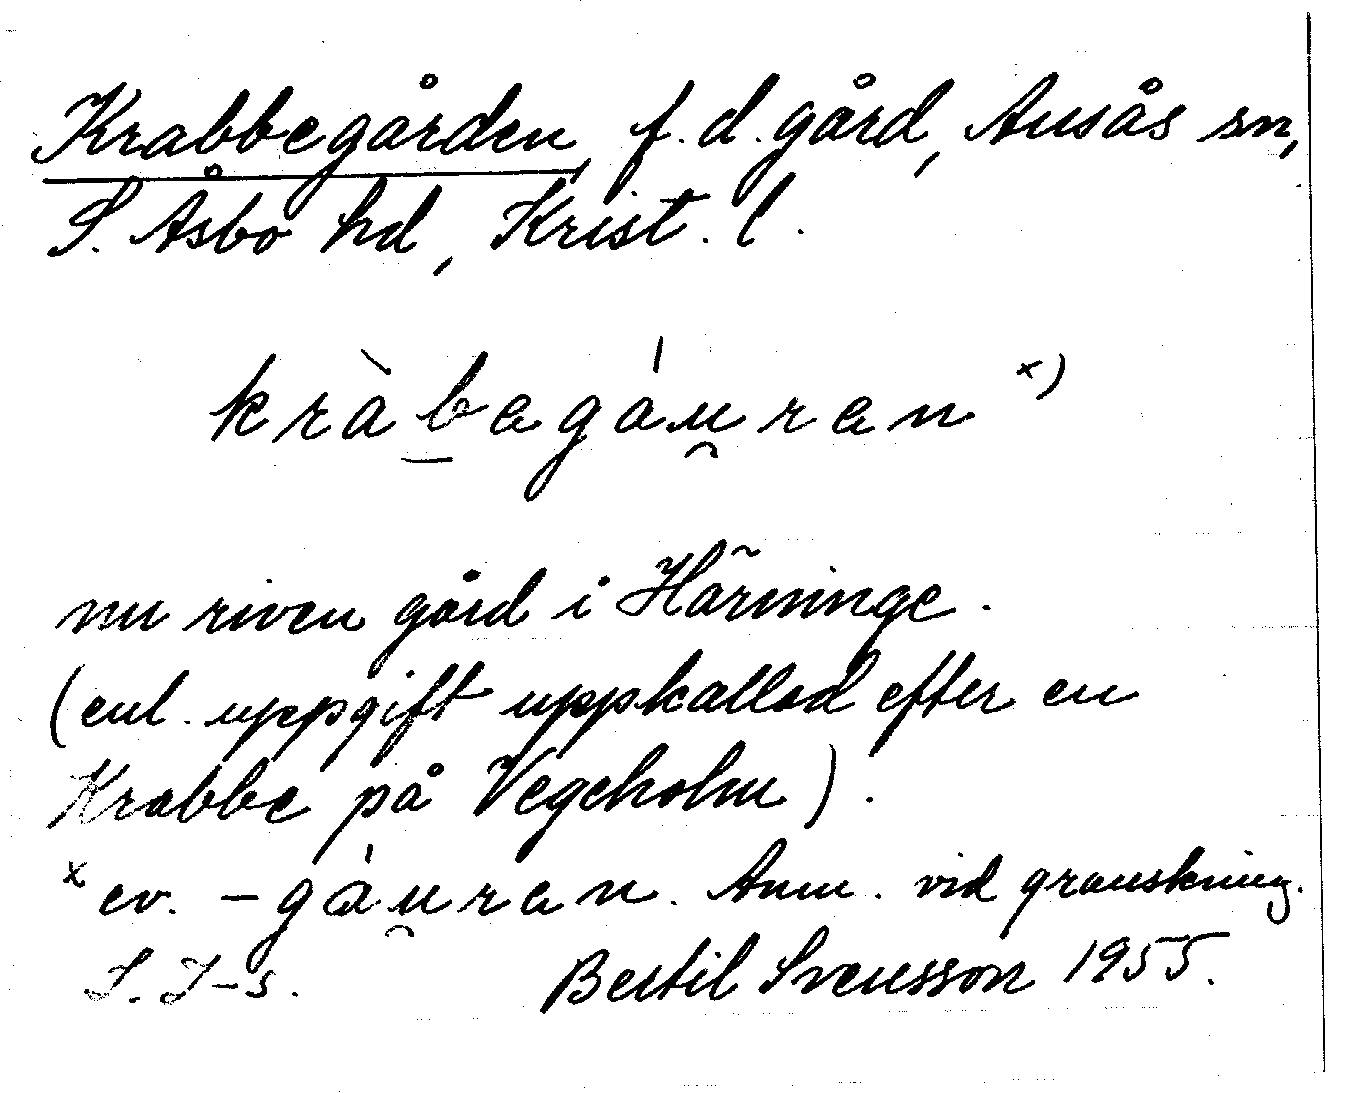 Krabbegården, f.d. gård, Ausås sn,
S. Åsbo hd, Krist. l.
kràbagáu̯ran x)
nu riven gård i Härninge.
(enl. uppgift uppkallad efter en
Krabbe på Vegeholm).
x ev. -gàu̯ran. Anm. vid granskning.
S. I-s. Bertil Svensson 1955.